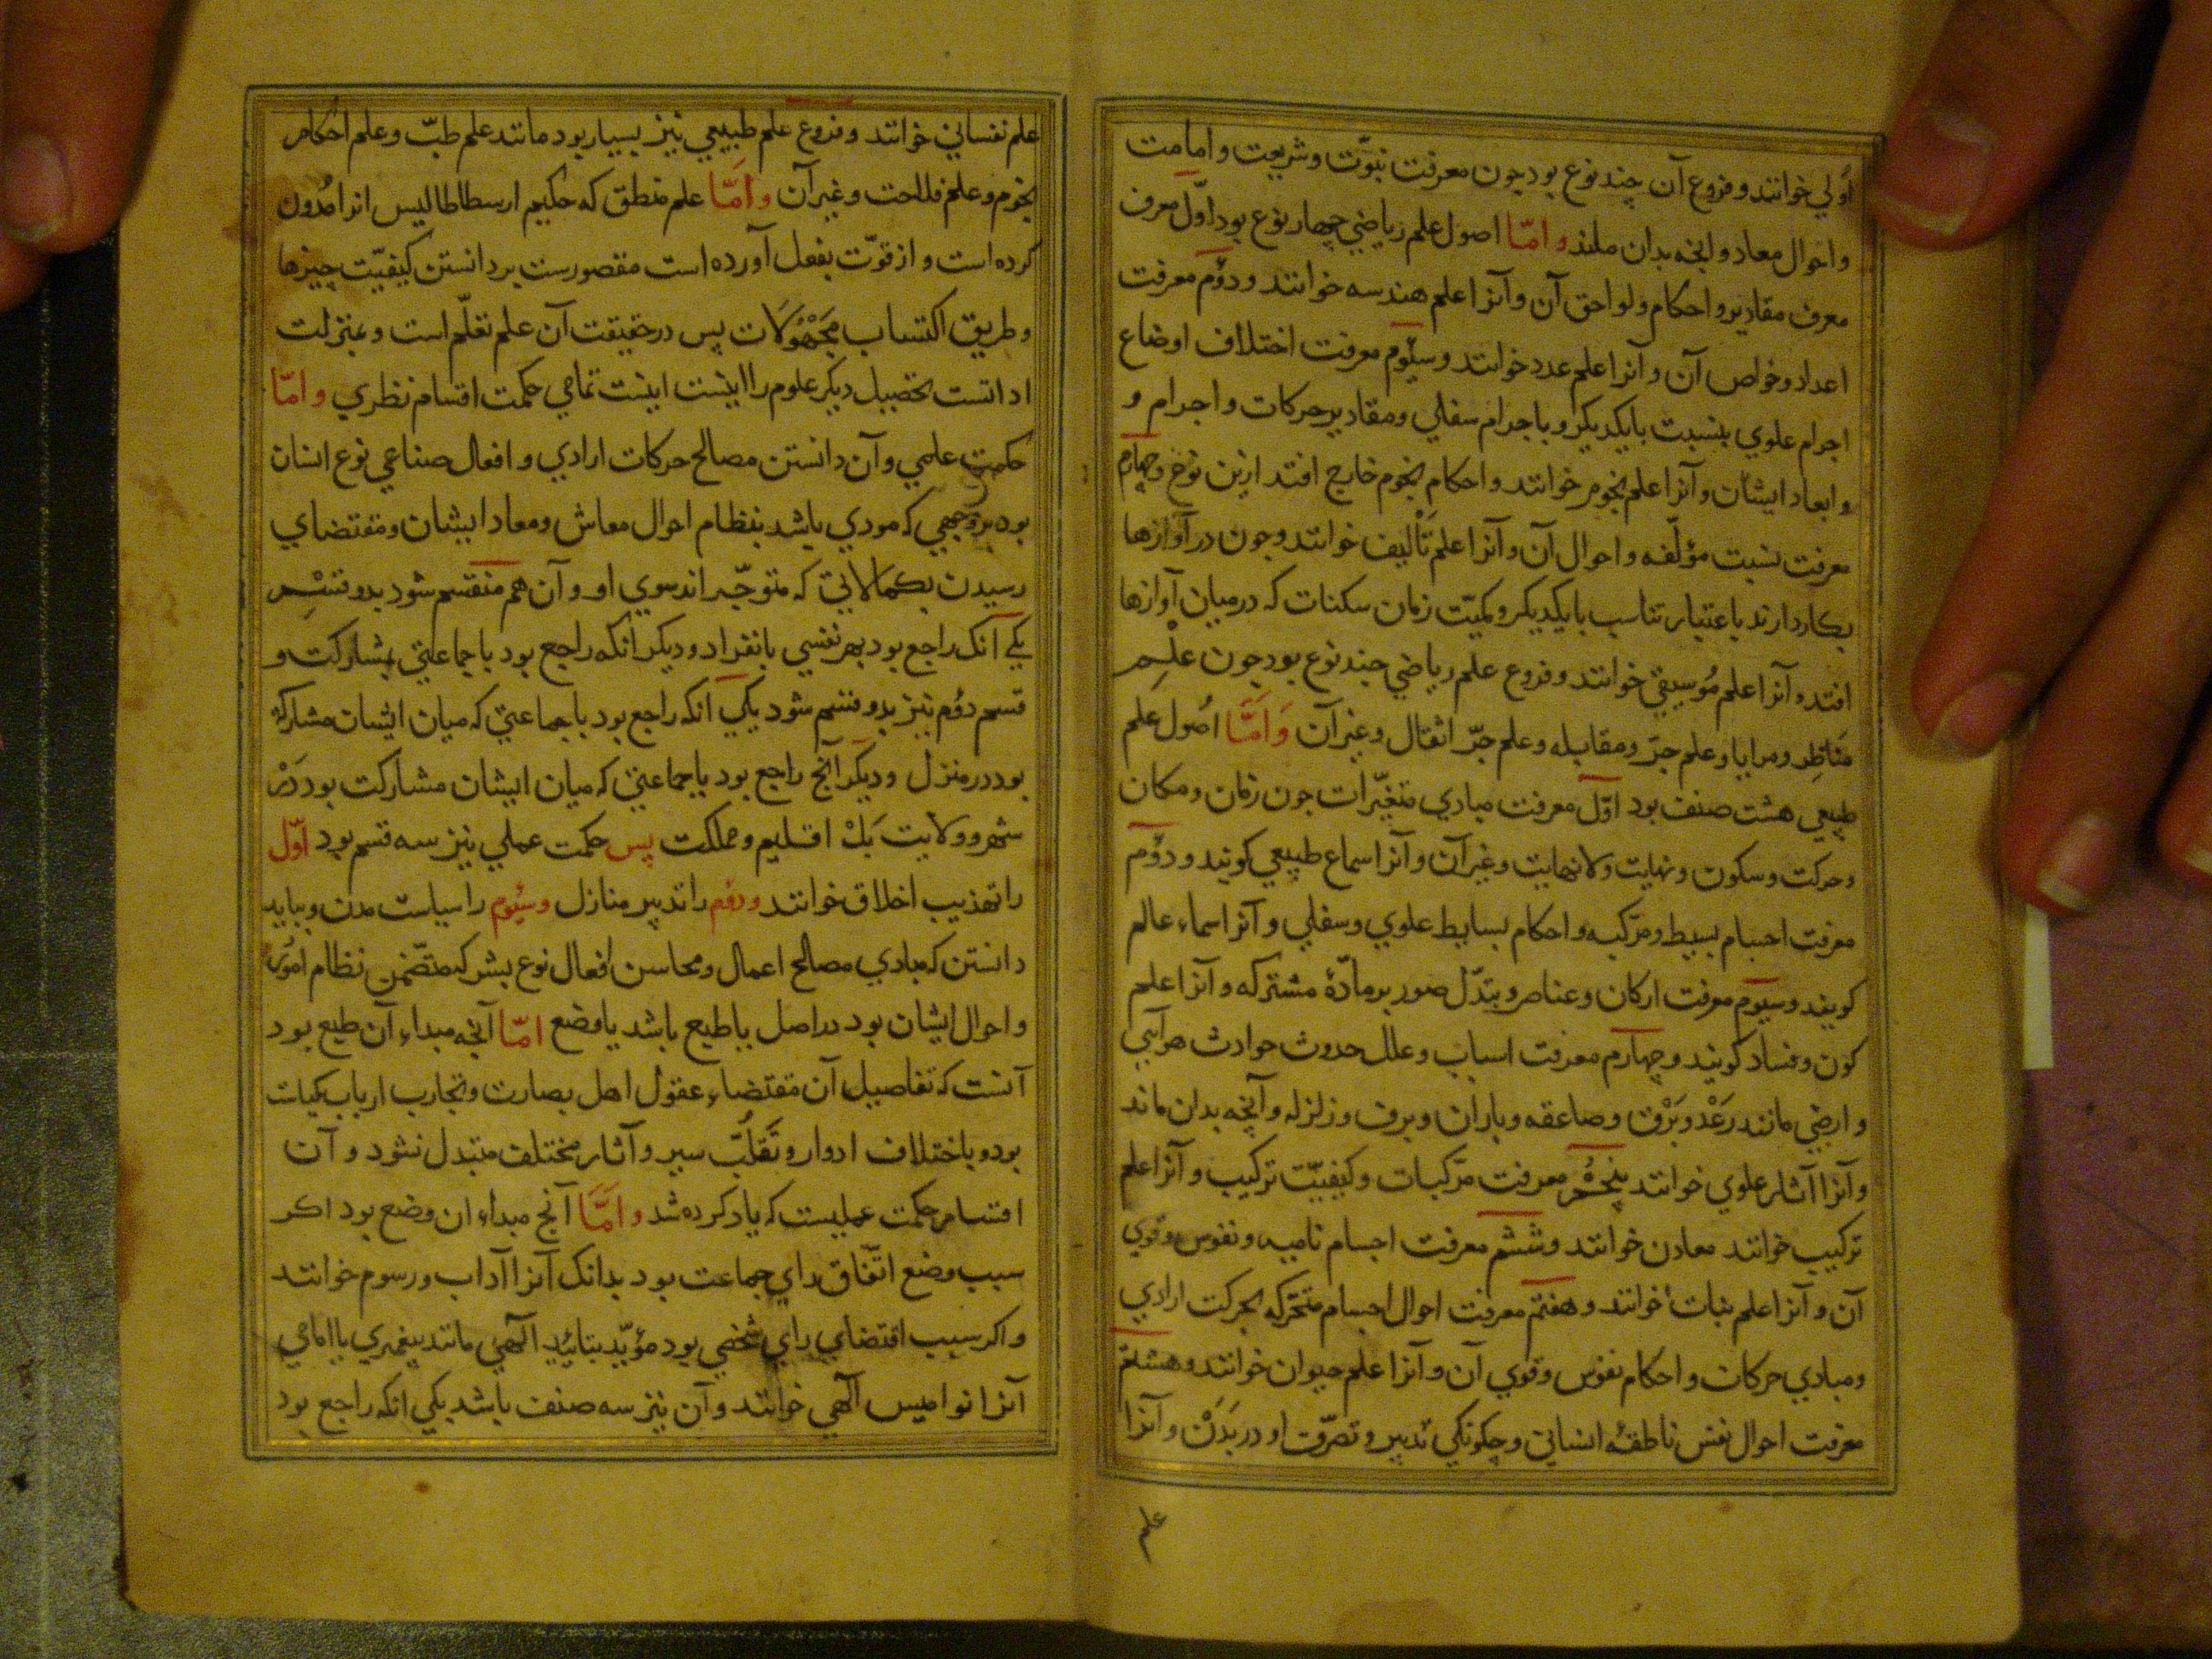 اُولي خوانند و فروع آن چند نوع بود چون معرفت نبوّت و شريعت و امامت
و احوال معاد و انچه بدان ماند و امّا اصول علم رياضي چهار نوع بود اوّل معرف
معرف مقادير و احكام و لواحق آن و آنرا علم هندسه خوانند و دوُم معرفت
اعداد و خواص آن و آنرا علم عدد خوانند و سيُوم معرفت اختلاف اوضاع
اجرام علوي بنسبت با يكديكر و با جرام سفلي و مقادير حركات و اجرام و
و ابعاد ايشان و آنرا علم نجوم خوانند و احكام نجوم خارج افتد ازين نوع و چهارم
معرفت نسبت مؤلّفه و احوال آن و آنرا علم تَأليف خوانند و چون در آوازها
بكار دارند باعتبار تناسب با يكديكر و كميّت زمان سكنات كه در ميان آوازها
افتد و آنرا علم مُوسيقي خوانند و فروع علم رياضي چند نوع بود چون علم
مَناظِر و مرايا و علم جبر و مقابله و علم جرّ اثقال و غير آن وَ اَمَّا اُصول علم
طبيعي هشت صنف بود اوّل معرفت مبادي متغيّرات چون زمان و مكان
و حركت و سكون و نهايت و لا نهايت و غير آن و آنرا سماع طبيعي كويند و دوُم
معرفت اجسام بسيط و مرّكبه و احكام بسايط علوي و سفلي و آنرا سماء عالم
كويند و سيُوم معرفت اركان و عناصر و تبدّل صور بر مادّهٔ مشتركه و آنرا علم
كون و فساد كويند و چهارم معرفت اسباب و علل حدوث حوادث هوآيي
و ارضي مانند رَعْد و بَرْق و صاعقه و باران و برف و زلزله و آنچه بدان ماند
و آنرا آثار علوي خوانند پنجُم معرفت مرّكبات و كيفيّت تركيب و آنرا علم
تركيب خوانند معادن خوانند و ششم معرفت اجسام ناميه و نفوس و قوي
آن و آنرا علم نبات خوانند و هفتم معرفت احوال اجسام متحرّكه بحركت ارادي
و مبادي حركات و احكام نفوس و قوي آن و آنرا علم حيوان خوانند و هشتم
معرفت احوال نفس ناطقهٔ انساني و چكونكي تدبير و تصرّف او در بَدَنْ و آنرا
علم
علم نفساني خوانند و فروع علم طبيعي نيز بسيار بود مانند علم طبّ و علم احكام
نجوم و علم فلاحت و غير آن و اَمَّا علم منطق كه حكيم ارسطاطاليس انرا مُدون
كرده است و از قوّت بفعل آورده است مقصورست بر دانستن كيفيّت چيزها
و طريق اكتساب مَجْهُولَات پس در حقيقت آن علم تعلّم است و بمنزلت
اداتست تحصيل ديكر علوم را اينست اينست تمامي حكمت اقسام نظري و امّا
حكمت علمي و آن دانستن مصالح حركات ارادي و افعال صناعي نوع انسان
بود بر وجهي كه مودي باشد بنظام احوال معاش و معاد ايشان و مقتضاي
رسيدن بكمالاتي كه متوجّه اند سوي او و آن هم منقسم شود بدو قسم
يكے آنك راجع بود بهر نفسي بانفراد و ديكر انكه راجع بود با جماعتي بشاركت و
قسم دوُم نيز بدو قسم شود يكي انكه راجع بود با جماعتي كه ميان ايشان مشاركت
بود در منزل و ديكر آنچ راجع بود با جماعتي كه ميان ايشان مشاركت بود دَرْ
شهر و ولايت بَلْ اقليم و مملكت پس حكمت عملي نيز سه قسم بود اوّل
را تهذيب اخلاق خوانند و دوُم را تدبير منازل و سيُوم را سياست مدن و ببايد
دانستن كه مبادي مصالح اعمال و محاسن افعال نوع بشر كه متضمن نظام امُور
و احوال ايشان بود در اصل يا طبع باشد يا وضع امّا آنچه مبداء آن طبع بود
آنست كه تفاصيل آن مقتضاء عقول اهل بصارت و تجارب ارباب كياست
بود و باختلاف ادوار و تَقَلُّب سير و آثار مختلف متبدل نشود و آن
اقسام حكمت عمليست كه ياد كرده شد و اَمَّا آنچ مبداء ان وضع بود اكر
سبب وضع اتّفاق راي جماعت بود بدانك آنرا آداب و رسوم خوانند
و اكر سبب اقتضاي راي شخصي بود مؤيّد بتائيد آلهي مانند پيغمبري يا امامي
آنرا نواميس آلهي خوانند و آن نيز سه صنف باشد يكي انكه راجع بود